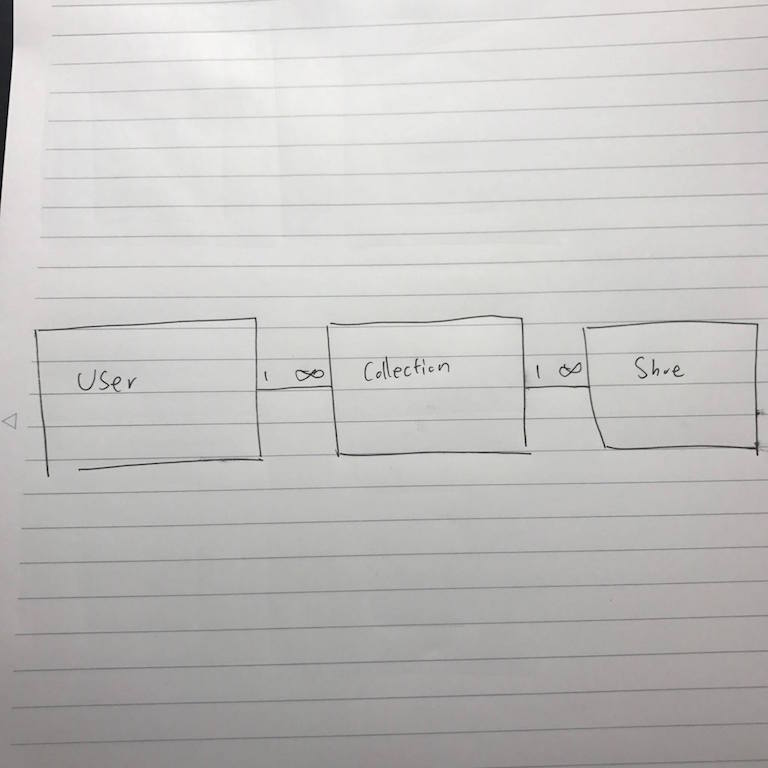 User 1 ∞ Collection 1 ∞ Shoe